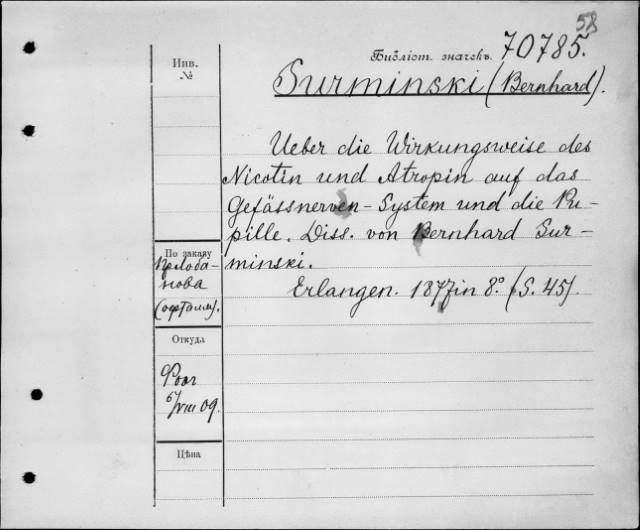 58
Библіот. значекъ. 70785.
Surminski (Bernhard).
Инв.
№
Ueber die Wirkungsweise des
Nicotin und Atropin auf das
Gefässnerven-System und die Pu-
pille. Diss. von Bernhard Sur-
minski.
Erlangen. 1877 in 8° (S. 45).
По заказу
нова
(офталм).
Откуда
6/VIII 09.
Цѣна